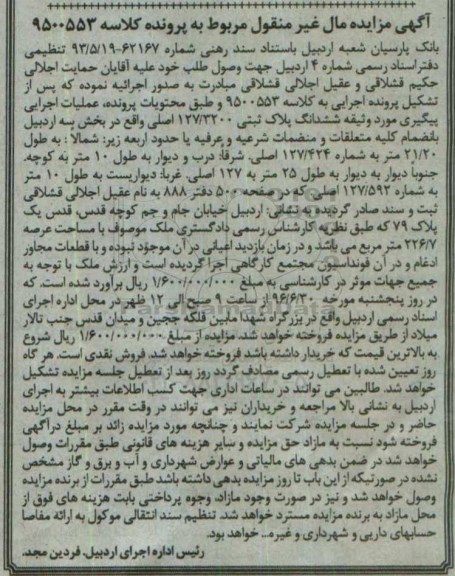 آگهی مزایده مال غیر منقول مربوط به پرونده کلاسه ۹۵۰۰۵۵۳
بانک پارسیان شعبه اردبیل باستناد سند رهنی شماره ۶۲۱۶۷-۹۳/۵/۱۹ تنظیمی
دفتر اسناد رسمی شماره ۴ اردبیل جهت وصول طلب خود علیه آقایان حمایت اجلالی
حکیم قشلاقی و عقیل اجلالی قشلاقی مبادرت به صدور اجرائیه نموده که پس از
تشکیل پرونده اجرایی به کلاسه ۹۵۰۰۵۵۳ و طبق محتویات پرونده، عملیات اجرایی
پیگیری مورد وثیقه ششدانگ پلاک ثبتی ۱۲۷/۳۲۰۰ اصلی واقع در بخش سه اردبیل
بانضمام کلیه متعلقات و منضمات شرعیه و عرفیه با حدود اربعه زیر: شمالا : به طول
۲۱/۲۰ متر به شماره ۱۲۷/۴۲۴ اصلی. شرقا: درب و دیوار به طول ۱۰ متر به کوچه.
جنوبا دیوار به دیوار به طول ۲۵ متر به ۱۲۷ اصلی. غربا: دیواریست به طول ۱۰ متر
به شماره ۱۲۷/۵۹۲ اصلی که در صفحه ۵۰۰ دفتر ۸۸۸ به نام عقیل اجلالی قشلاقی
ثبت و سند صادر گردیده به نشانی: اردبیل خیابان جام و جم کوچه قدس، قدس یک
پلاک ۷۹ که طبق نظریه کارشناس رسمی دادگستری ملک موصوف با مساحت عرصه
۲۲۶/۷ متر مربع می باشد و در زمان بازدید اعیانی در آن موجود نبوده و با قطعات مجاور
ادغام و در آن فونداسیون مجتمع کارگاهی اجرا گردیده است و ارزش ملک با توجه به
جمیع جهات موثر در کارشناسی به مبلغ ۱/۶۰۰/۰۰۰/۰۰۰ ریال برآورد شده است. که
در روز پنجشنبه مورخه ۹۶/۶/۳۰ از ساعت ۹ صبح الی ۱۲ ظهر در محل اداره اجرای
اسناد رسمی اردبیل واقع در بزرگراه شهدا مابین فلکه ججین و میدان قدس جنب تالار
میلاد از طریق مزایده فروخته خواهد شد. مزایده از مبلغ ۱/۶۰۰/۰۰۰/۰۰۰ ریال شروع
به بالاترین قیمت که خریدار داشته باشد فروخته خواهد شد. فروش نقدی است. هر گاه
روز تعیین شده با تعطیل رسمی مصادف گردد روز بعد از تعطیل جلسه مزایده تشکیل
خواهد شد. طالبین می توانند در ساعات اداری جهت کسب اطلاعات بیشتر به اجرای
اردبیل به نشانی بالا مراجعه و خریداران نیز می توانند در وقت مقرر در محل مزایده
حاضر و در جلسه مزایده شرکت نمایند و چنانچه مورد مزایده زائد بر مبلغ درآگهی
فروخته شود نسبت به مازاد حق مزایده و سایر هزینه های قانونی طبق مقررات وصول
خواهد شد در ضمن بدهی های مالیاتی و عوارض شهرداری و آب و برق و گاز مشخص
نشده در صورتیکه از این باب تا روز مزایده بدهی داشته باشد طبق مقررات از برنده مزایده
وصول خواهد شد و نیز در صورت وجود مازاد، وجوه پرداختی بابت هزینه های فوق از
محل مازاد به برنده مزایده مسترد خواهد شد. تنظیم سند انتقالی موکول به ارائه مفاصا
حسابهای دارایی و شهرداری و غیره... خواهد بود.
رئیس اداره اجرای اردبیل. فردین مجد.